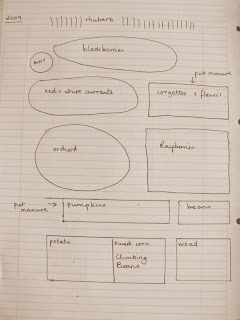 2009
rhubarb
blackberries
mint
put manure
red + white currants
corgettes + flowers
orchard
Raspberries
put manure
pumpkins
beans
potato
sweet corn
woad
Climbing
Beans